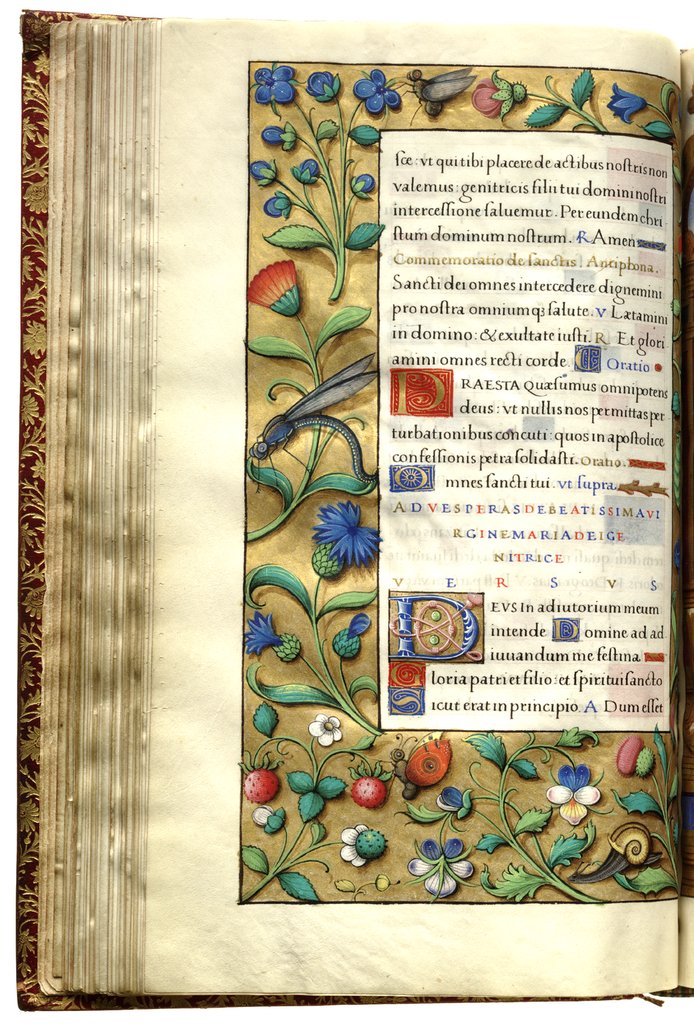 sce: vt qui tibi placere de actibus nostris non
valemus: genitricis filii tui domini nostri
intercessione saluemur. Per eundem chri
stum dominum nostrum. R Amen
Commemoratio de sanctis. Antiphona.
Sancti dei omnes intercedere dignemini
pro nostra omniumq; salute. v Lætamini
in domino: & exultate iusti. R Et glori
amini omnes recti corde. C Oratio
PRAESTA Quæsumus omnipotens
deus: vt nullis nos permittas per
turbationibus concuti: quos in apostolice
confessionis petra solidasti. Oratio.
Omnes sancti tui. vt supra
AD VESPERAS DE BEATISSIMA VI
RGINE MARIA DEI GE
NITRICE
VERSVS
DEVS In adiutorium meum
intende Domine ad ad
iuuandum me festina
Gloria patri et filio: et spiritui sancto
Sicut erat in principio. A Dum esset